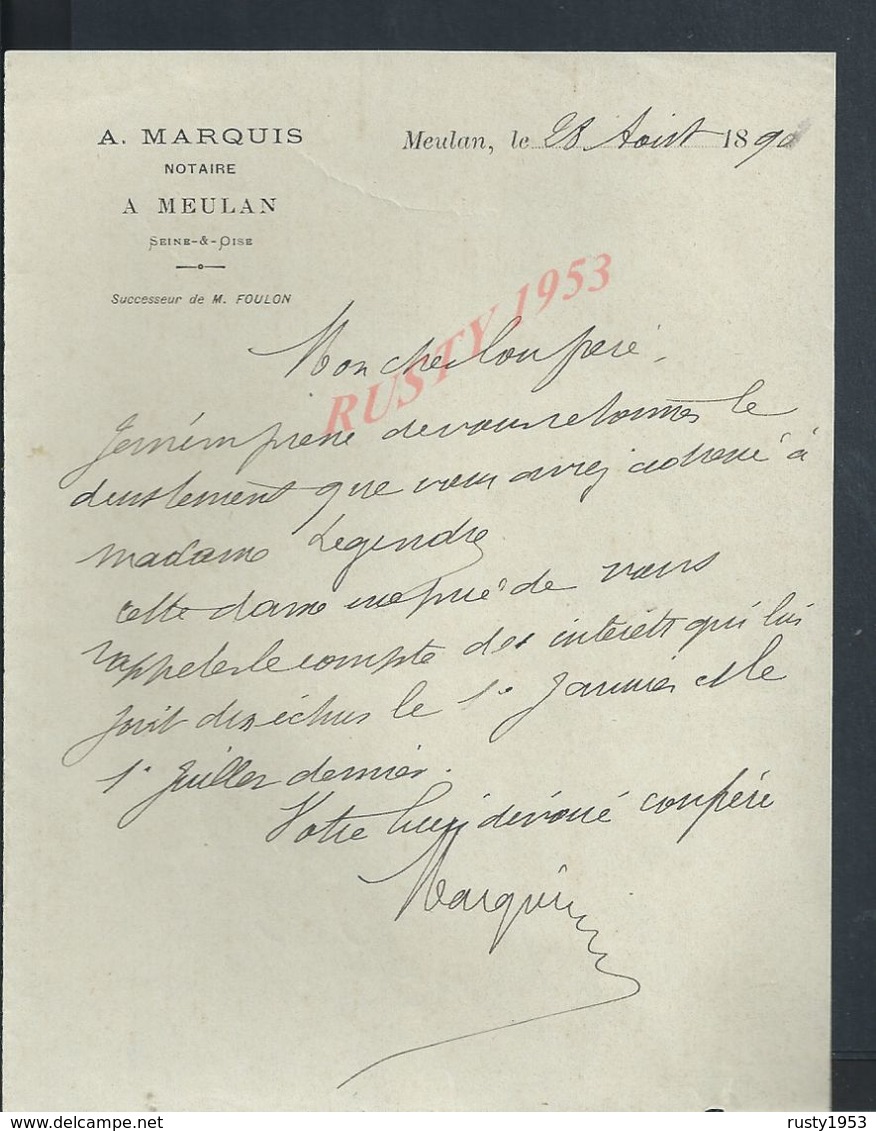 A. MARQUIS
NOTAIRE
A MEULAN
SEINE-&-OISE
Successeur de M. FOULON
Meulan, le 28 Août 1890
RUSTY 1953
Mon cher
de vous retourner le
que vous avez adressé à
madame Legendre
cette dame me prie de vous
rappeler le compte des intérêts qui lui
sont dus échus le 1er Janvier et le
1er Juillet dernier.
Votre bien dévoué confrère
Marquis
rusty1953